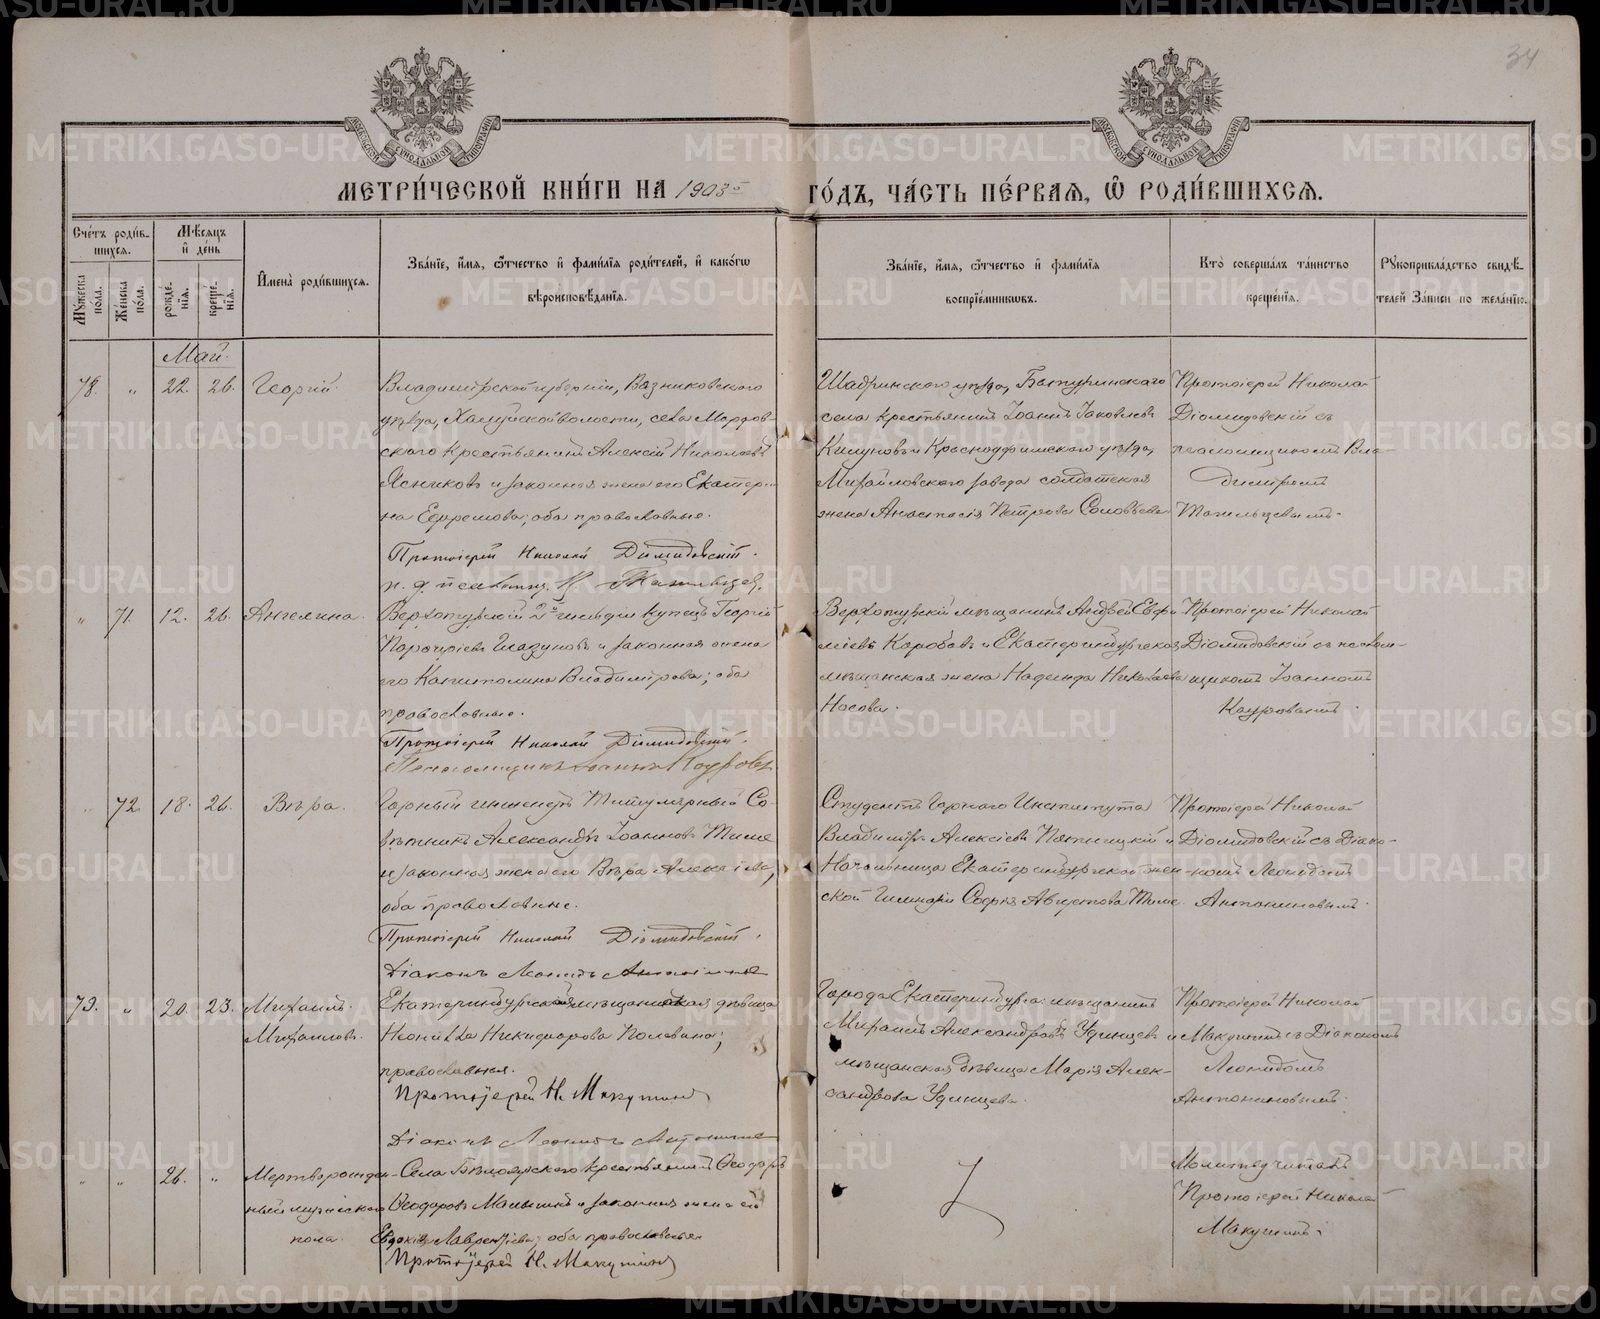 34
МОСКОВСКОЙ СУНОДАЛЬНОЙ ТИПОГРАФІИ
МОСКОВСКОЙ СУНОДАЛЬНОЙ ТИПОГРАФІИ
МЕТРИ́ЧЕСКОЙ КНИ́ГИ НА 1903й ГО́ДЪ, ЧА́СТЬ ПЕ́РВАЯ, Ѡ РОДИ́ВШИХСЯ.
Сче́тъ роди́в-
шихся.
Мꙋ́жеска пола.
Же́нска пола.
Мѣ́сяцъ
и де́нь
рожде́-
нїя.
креще́-
нїя.
Имена̀ роди́вшихся.
Зва́нїе, и́мя, ѻ́тчество и фами́лїя роди́телей, и како́гѡ
вѣроисповѣ́данїя.
Зва́нїе, и́мя, ѻ́тчество и фами́лїя
воспрїе́мникѡвъ.
Кто̀ соверша́лъ та́инство
креще́нїя.
Рꙋкоприкла́дство свидѣ́-
телей за́писи по жела́нїю.
Май.
78. " 22. 26. Георгій.
Владимірской губерніи, Вязниковского
уѣзда, Холуйской волости, села Мордов-
ского крестьянинъ Алексій Николаевъ
Ясниковъ и законная жена его Екатери-
на Ефремова; оба православные.
Протоіерей Николай Діомидовскій.
Шадринского уѣзда, Батуринского
села крестьянинъ Іоаннъ Іаковлевъ
и Красноуфимского уѣзда,
Михайловского завода солдатская
жена Анастасія Петрова Соловьева
Протоіерей Николай
Діомидовскій съ
псаломщикомъ Вла-
диміромъ
" 71. 12. 26. Ангелина.
Верхотурскій 2й гильдіи купецъ Георгій
Глазуновъ и законная жена
его Капитолина Владимірова; оба
православные.
Протоіерей Николай Діомидовскій.
Псаломщикъ Іоаннъ Кауровъ
Верхотурскій мѣщанинъ Андрей Евфи-
міевъ Коробовъ и Екатеринбургская
мѣщанская жена Надежда Николаева
Носова.
Протоіерей Николай
Діомидовскій съ псалом-
щикомъ Іоанномъ
Кауровымъ.
" 72. 18. 26. Вѣра.
Горный инженеръ Титулярный Со-
вѣтникъ Александръ Іоанновъ Тиме
и законная жена его Вѣра Алексіева,
оба православные.
Протоіерей Николай Діомидовскій.
Діаконъ Леонидъ Антониновъ
Студентъ Горнаго Института
Владиміръ Алексіевъ Пятницкій и
Начальница Екатеринбургской жен-
ской гимназіи Софія Августова Тиме.
Протоіерей Николай
Діомидовскій съ Діако-
номъ Леонидомъ
Антониновымъ.
79. " 20. 23. Михаилъ
Михаиловъ.
Екатеринбургская мѣщанская дѣвица
Неонилла Никифорова Полевана;
православная.
Протоіерей Н. Макушинъ
Діаконъ Леонидъ Антониновъ
Города Екатеринбурга: мѣщанинъ
Михаилъ Александровъ Удинцевъ и
мѣщанская дѣвица Марія Алек-
сандрова Удинцева.
Протоіерей Николай
Макушинъ съ Діакономъ
Леонидомъ
Антониновымъ.
" " 26. " Мертворожден-
ный мужескаго
пола.
Села Бѣлоярского крестьянинъ Ѳеодоръ
Ѳеодоровъ и законная жена его
Евдокія Лаврентіева; оба православные
Протоіерей Н. Макушинъ
Молитву читалъ
Протоіерей Николай
Макушинъ.
METRIKI.GASO-URAL.RU